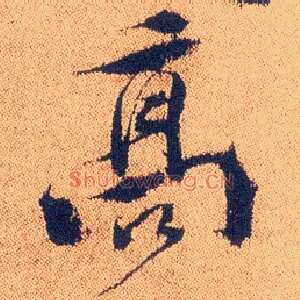 高
ShufaWang.CN